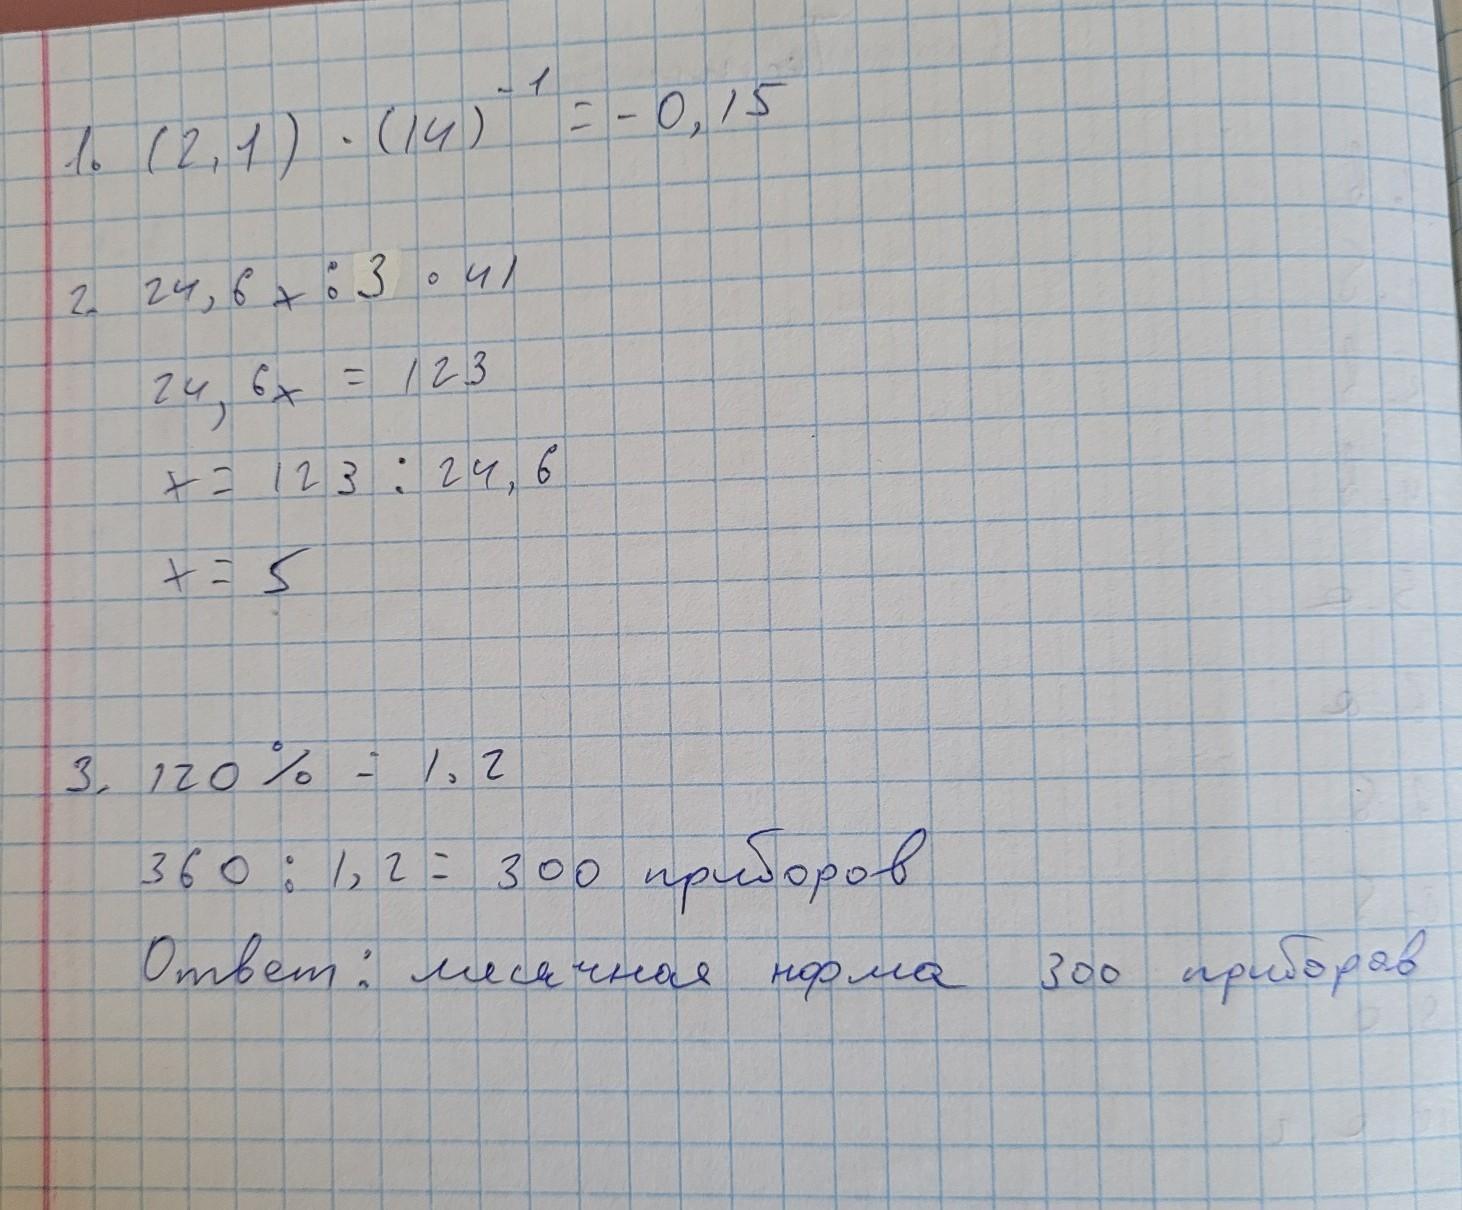 1. (2,1) · (14)⁻¹ = - 0,15
2. 24,6x : 3 · 41
24,6x = 123
x = 123 : 24,6
x = 5
3. 120% = 1.2
360 : 1,2 = 300 приборов
Ответ: месячная норма 300 приборов